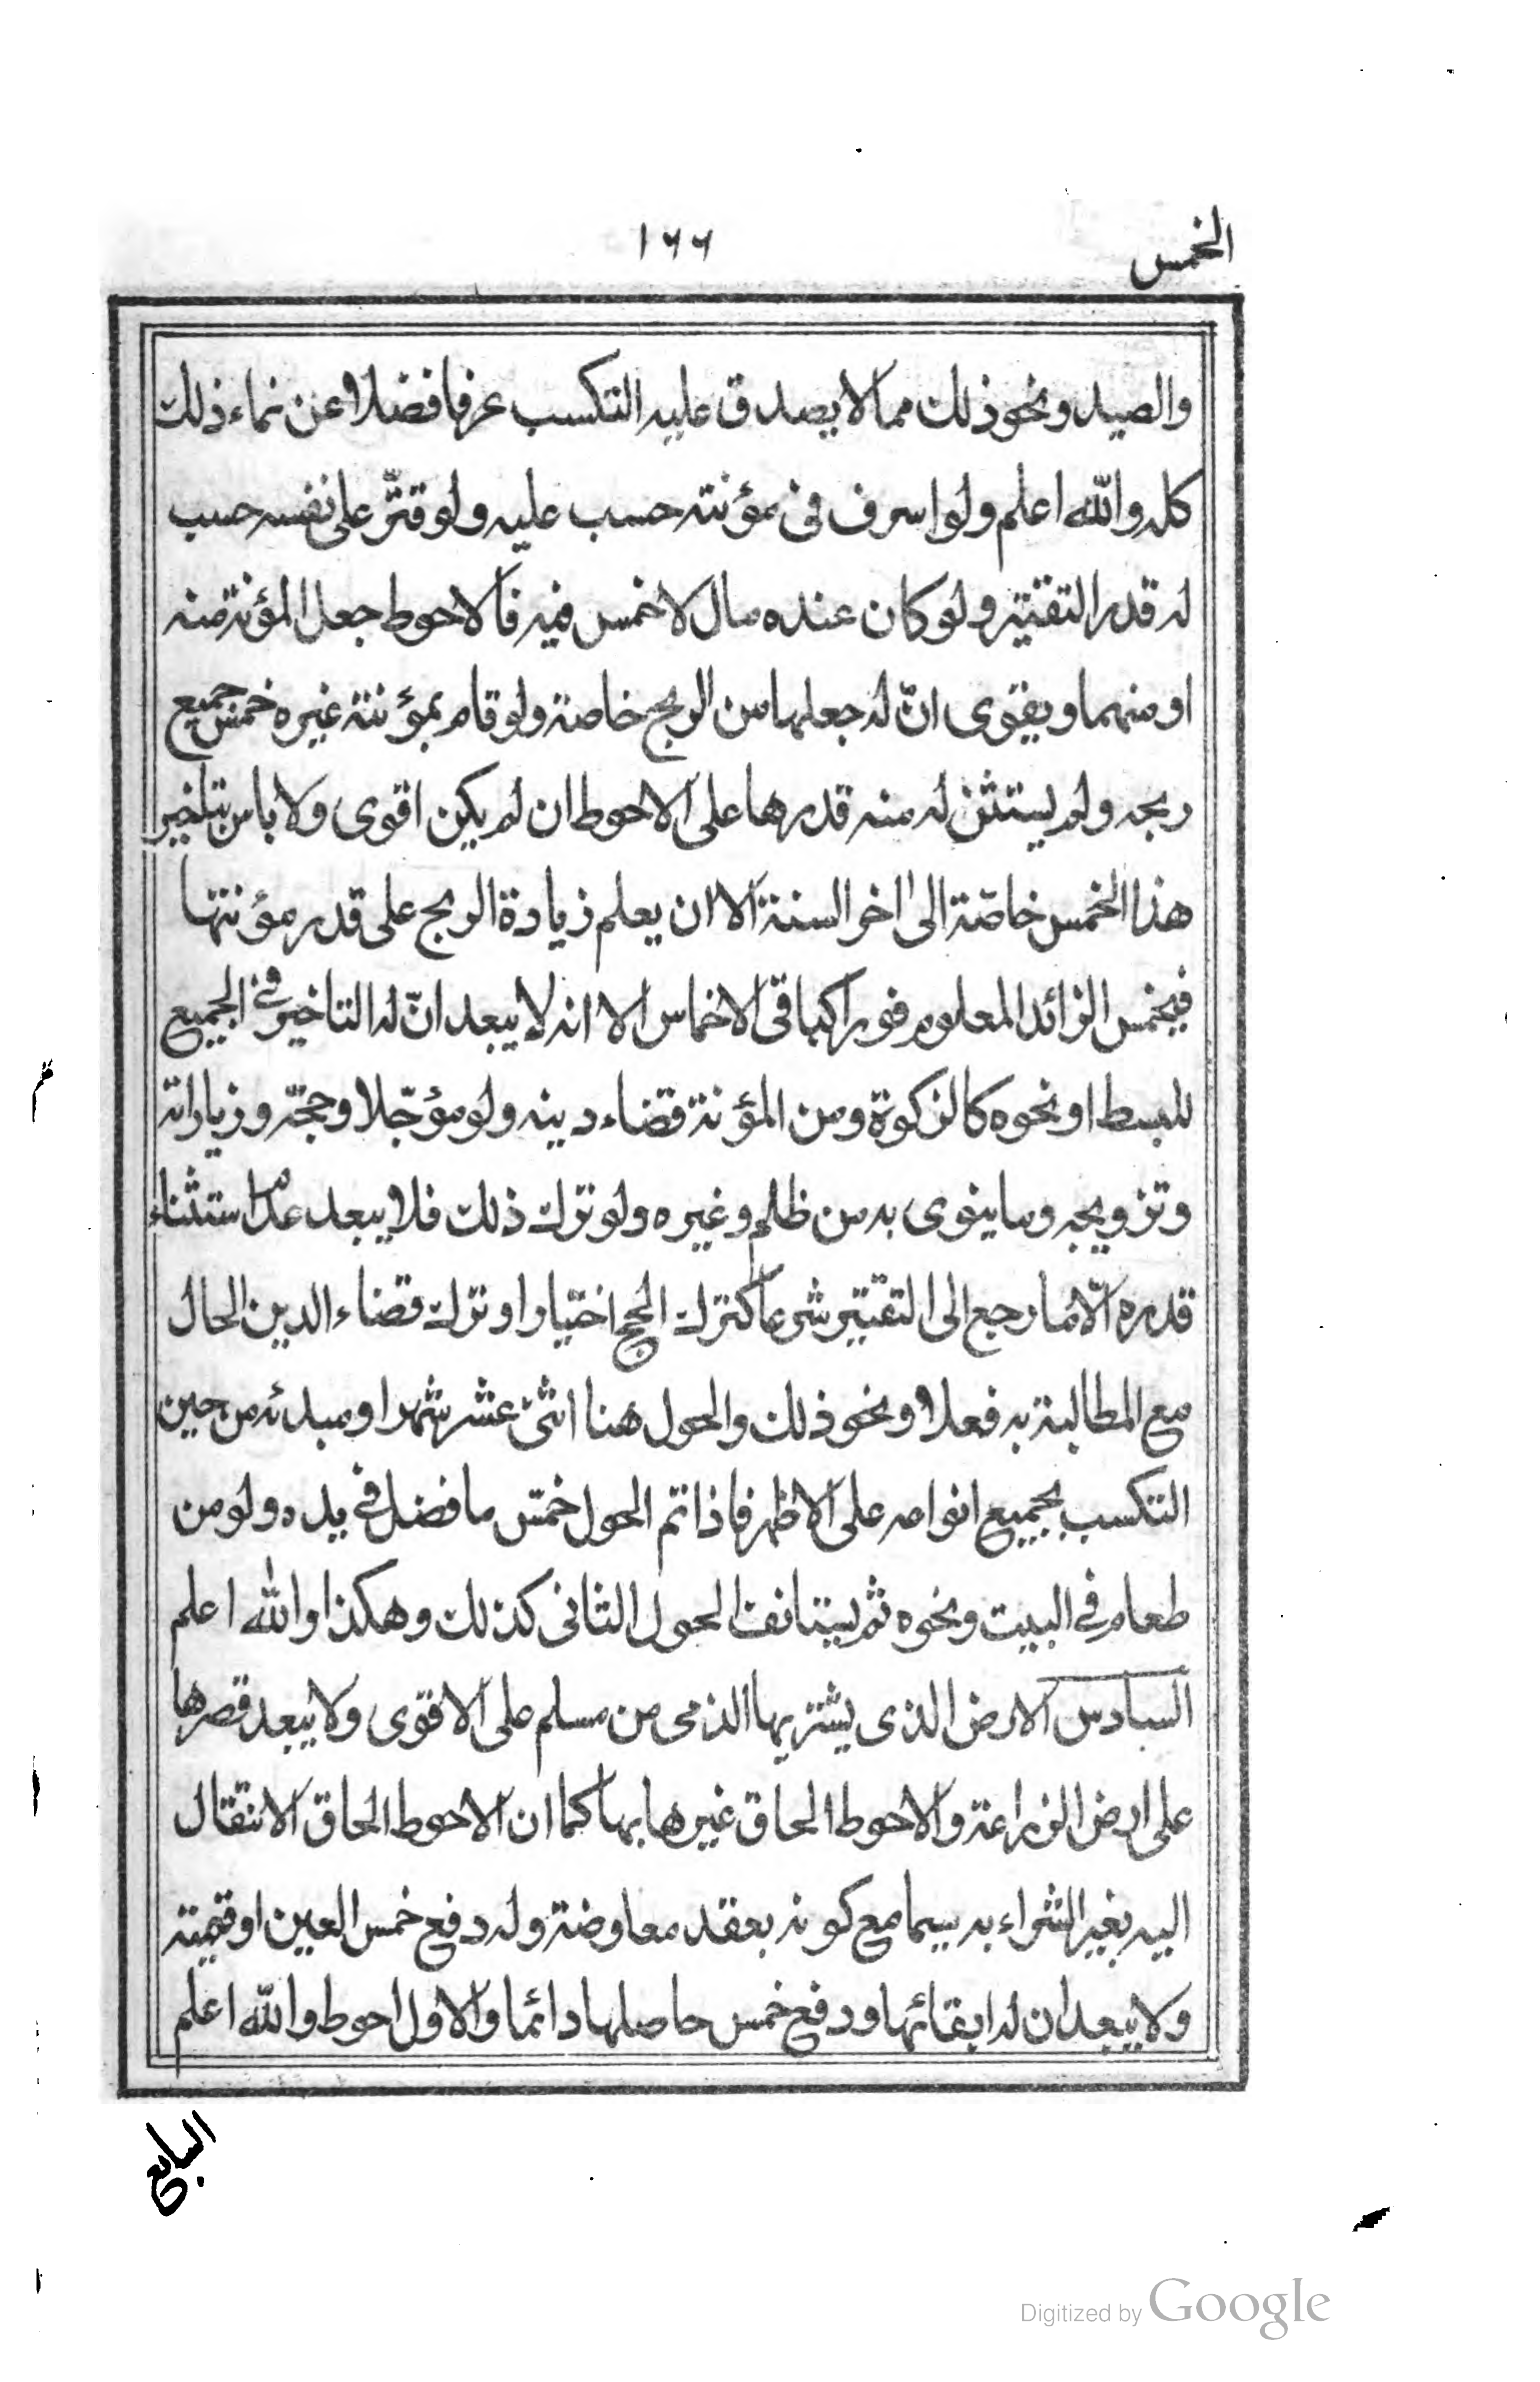 الخمس
١٦٦
والصيد ونحو ذلك مما لا يصدق عليه التكسب عرفا فضلا عن نماء ذلك
كله والله اعلم ولو اسرف في مؤنته حسب عليه ولو قتّر على نفسه حسب
له قدر التقتير ولو كان عنده مال لا خمس فيه فالاحوط جعل المؤنة منه
او منهما ويقوى انّ له جعلها من الربح خاصة ولو قام بمؤنته غيره خمس جميع
ربحه ولم يستثن له منه قدرها على الاحوط ان لم يكن اقوى ولا باس بتاخير
هذا الخمس خاصّة الى اخر السنة الا ان يعلم زيادة الربح على قدر مؤنتها
فيخمس الزائد المعلوم فورا كباقى الاخماس الا انه لا يبعد انّ له التاخير في الجميع
للبسط او نحوه كالزكوة ومن المؤنة قضاء دينه ولو مؤجّلا وحجّه وزياراته
وتزويجه وما ينوى به من ظلم وغيره ولو ترك ذلك فلا يبعد عدم استثناء
قدره الّا ما رجع الى التقتير شرعا كترك الحج اختيارا او ترك قضاء الدين الحال
مع المطالبة به فعلا ونحو ذلك والحول هنا اثنى عشر شهرا ومبدئه من حين
التكسب بجميع انواعه على الاظهر فاذا تم الحول خمّس ما فضل في يده ولو من
طعام في البيت ونحوه ثم يستانف الحول الثانى كذلك وهكذا والله اعلم
السادس الارض الذى يشتريها الذمى من مسلم على الاقوى ولا يبعد قصرها
على ارض الزراعة والاحوط الحاق غيرها بها كما ان الاحوط الحاق الانتقال
اليه بغير الشراء به سيما مع كونه بعقد معاوضة وله دفع خمس العين او قيمته
ولا يبعد ان له ابقائها ودفع خمس حاصلها دائما والاول احوط والله اعلم
السابع
Digitized by Google